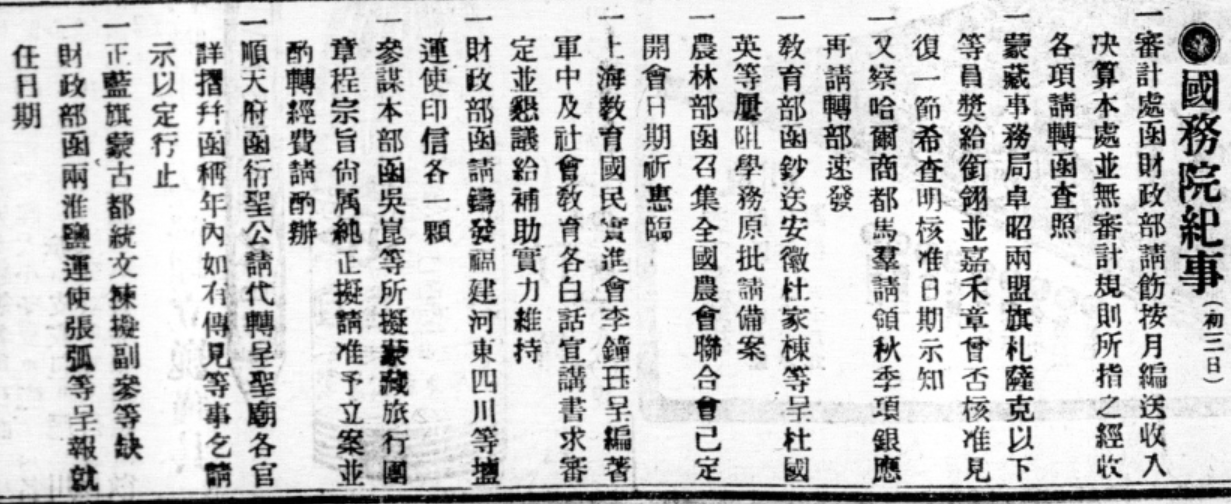 國務院紀事(初三日)
一審計處函財政部請飭按月編送收入
決算本處並無審計規則所指之經收
各項請轉函查照
一蒙藏事務局卓昭兩盟旗札薩克以下
等員獎給銜翎並嘉禾章曾否核准見
復一節希查明核准日期示知
一又察哈爾商都馬羣請領秋季項銀應
再請轉部速發
一敎育部函鈔送安徽杜家棟等呈杜國
英等屢阻學務原批請備案
一農林部函召集全國農會聯合會已定
開會日期祈惠臨
一上海教育國民實進會李鐘珏呈編著
軍中及社會敎育各白話宣講書求審
定並懇議給補助實力維持
一財政部函請鑄發福建河東四川等鹽
運使印信各一顆
一參謀本部函吳崑等所擬蒙藏旅行團
章程宗旨尙属純正擬請准予立案並
酌轉經費請酌辦
一順天府函衍聖公請代轉呈聖廟各官
詳摺幷函稱年內如有傳見等事乞請
示以定行止
一正藍旗蒙古都統文揀擬副參等缺
一財政部函兩淮鹽運使張弧等呈報就
任日期